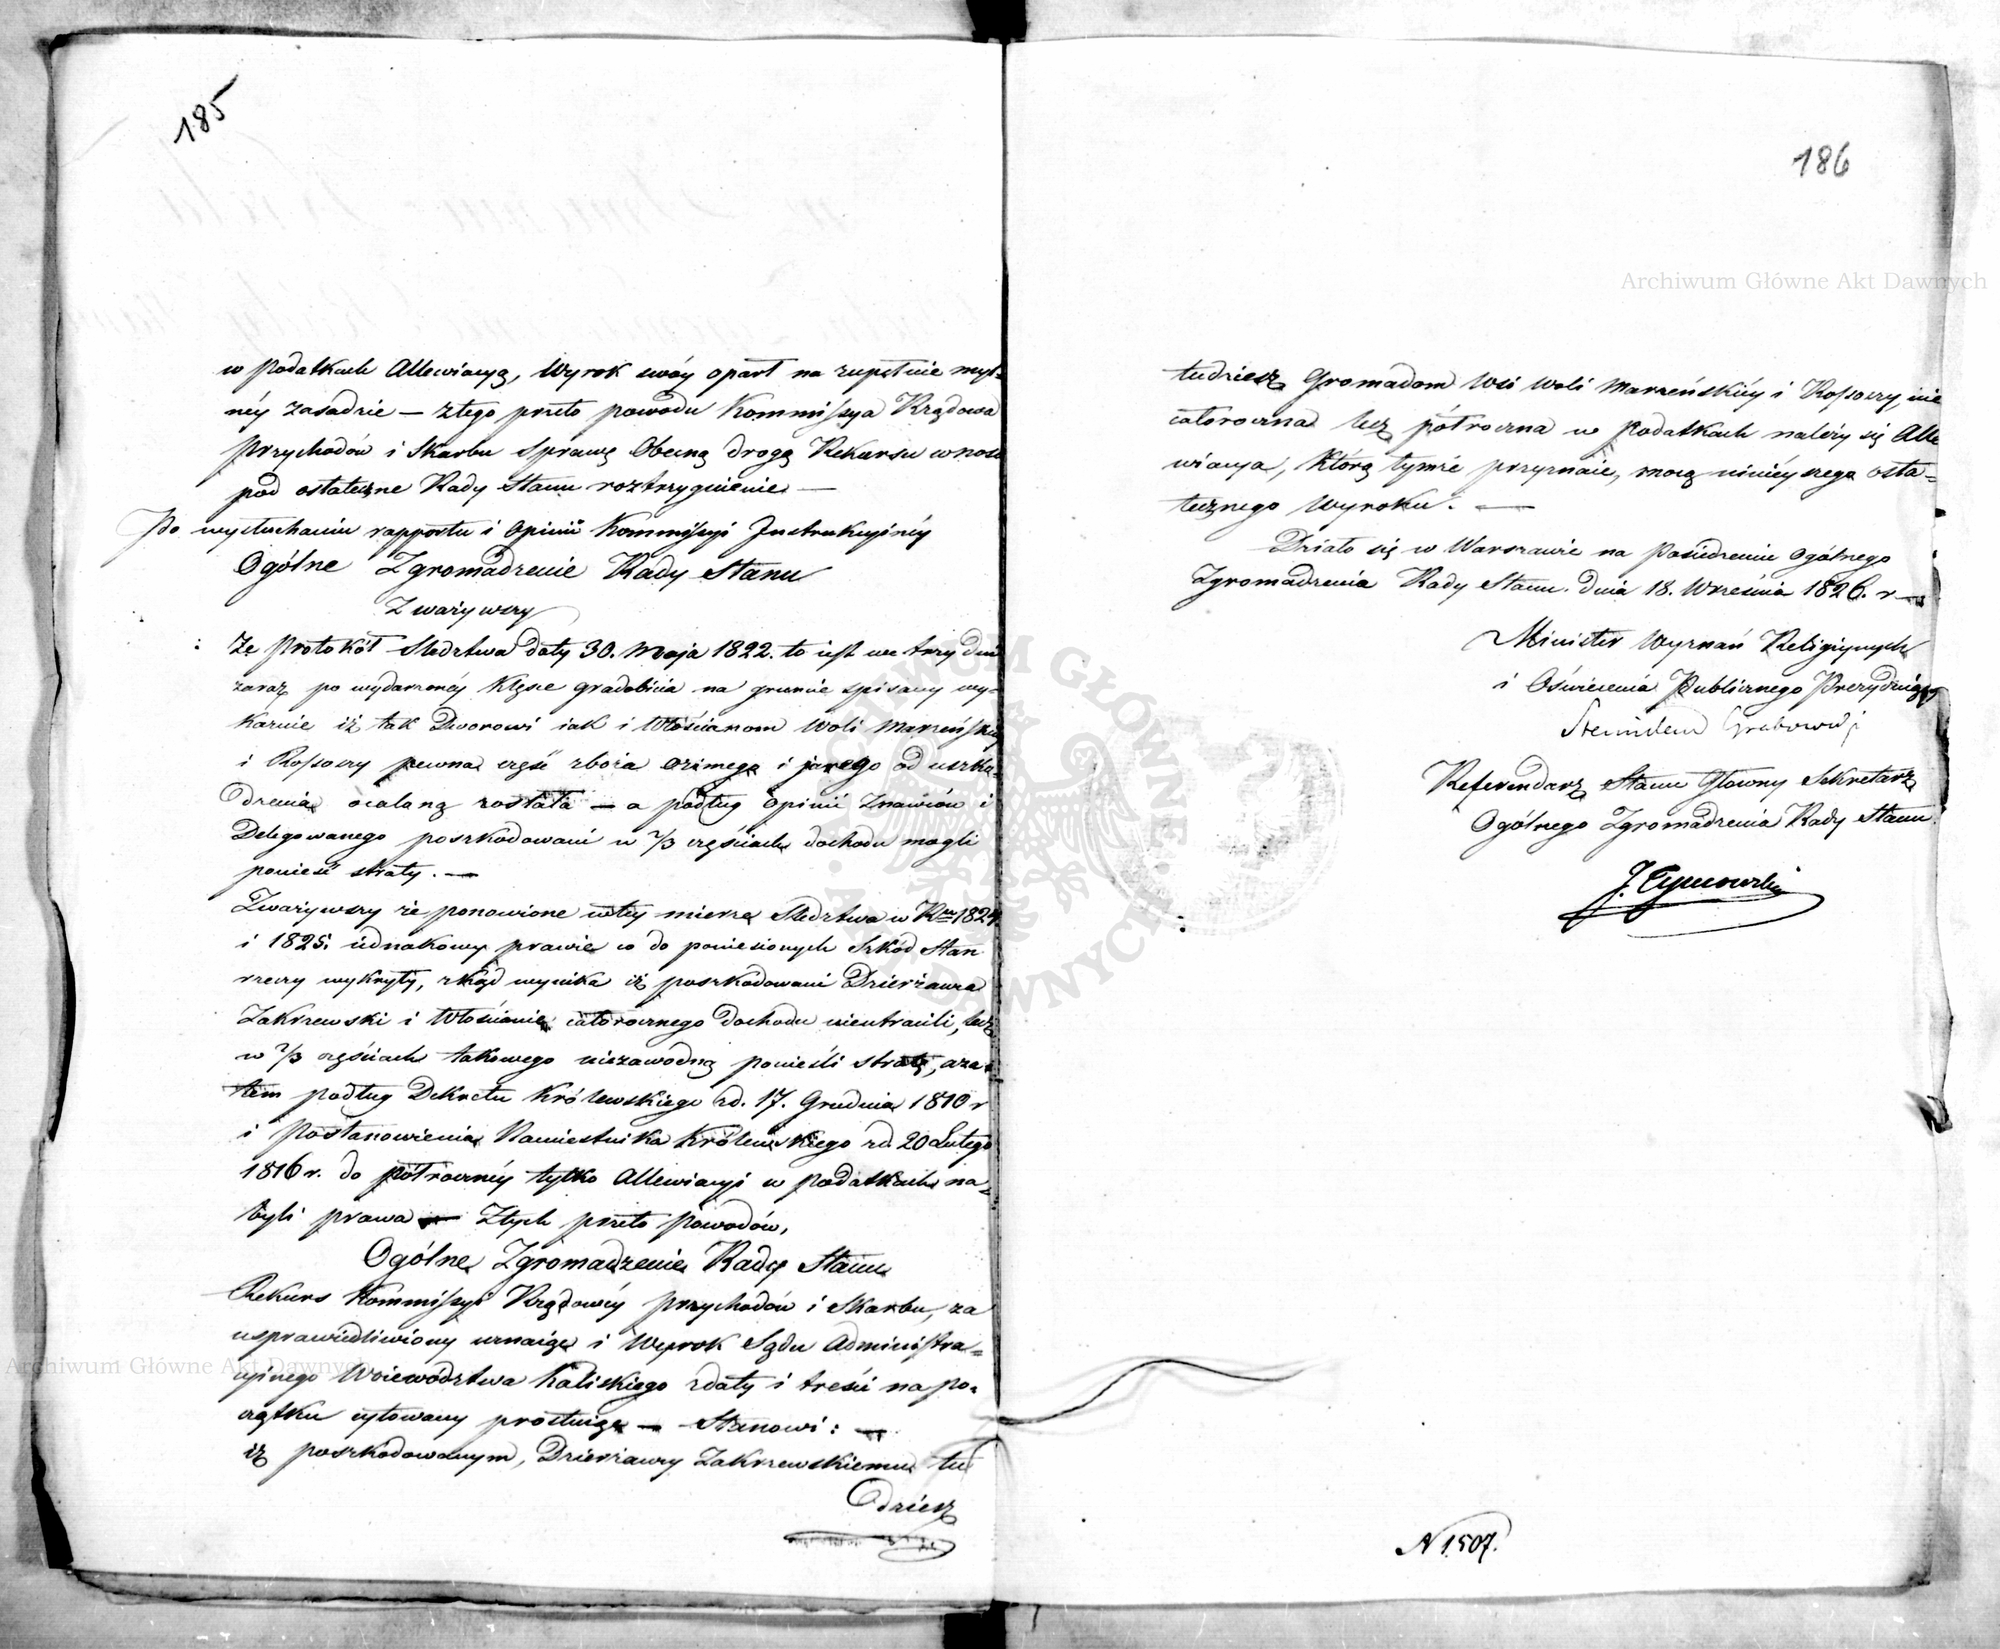 185
w podatkach Allewiacyą, Wyrok swóy oparł na zupełnie myl=
néy zasadzie — ztego przeto powodu Kommissya Rządowa
Przychodów i Skarbu Sprawę Obecną drogą Rekursu wnosi
pod ostateczne Rady Stanu roztrzygnienie —
Po wysłuchaniu rapportu i Opinii Kommissyi Instrukcyinéy
Ogólne Zgromadzenie Rady Stanu
Zważywszy
że Protokół Sledztwa daty 30. Maja 1822. to iest we trzy dni
zaraz po wydarzonéy klęsce gradobicia na gruncie spisany wy=
kazuie iż tak Dworowi iak i Włościanom Woli Marzeńskiéy
i Rossoszy pewna część zboża ozimego i jarego od uszko=
dzenia ocaloną została — a podług opinii Znawców i
Delegowanego poszkodowani w 2/3 częściach dochodu mogli
ponieść straty. —
Zważywszy że ponowione wtey mierze Sledztwa w Ru 1824
i 1825. iednakowy prawie co do poniesionych Szkód Stan
rzeczy wykryły, zkąd wynika iż poszkodowani Dzierżawca
Zakrzewski i Włościanie całorocznego dochodu nieutracili, lecz
w 2/3 częściach takowego niezawodną ponieśli stratę, aza=
tem podług Dekretu Królewskiego zd. 17. Grudnia 1810 r
i Postanowienia Namiestnika Królewskiego zd. 20 Lutego
1816 r. do półrocznéy tylko Allewiacyi w podatkach na=
byli prawa — Ztych przeto powodów,
Ogólne Zgromadzenie Rady Stanu
Rekurs Kommissyi Rządowéy Przychodów i Skarbu, za
usprawiedliwiony uznaiąc i Wyrok Sądu Administra=
cyinego Województwa Kaliskiego zdaty i treści na po=
czątku cytowany prostuiąc — Stanowi: —
iż poszkodowanym, Dzierżawcy Zakrzewskiemu tu
dzież
186
tudzież Gromadom Wsi Woli Marzeńskiéy i Rossoszy, nie
całoroczna lecz półroczna w Podatkach należy się Alle
wiacya, którą tymże przyznaie, mocą ninieyszego osta=
tecznego Wyroku. —
Działo się w Warszawie na Posiedzeniu Ogólnego
Zgromadzenia Rady Stanu. dnia 18. Września 1826. r —
Minister Wyznań Religiynych
i Oświecenia Publicznego Prezyduiący
Stanisław Grabowski
Referendarz Stanu Główny Sekretarz
Ogólnego Zgromadzenia Rady Stanu
J. Tymowski
N 1507.
Archiwum Główne Akt Dawnych
Archiwum Główne Akt Dawnych
ARCHIWUM GŁÓWNE AKT DAWNYCH